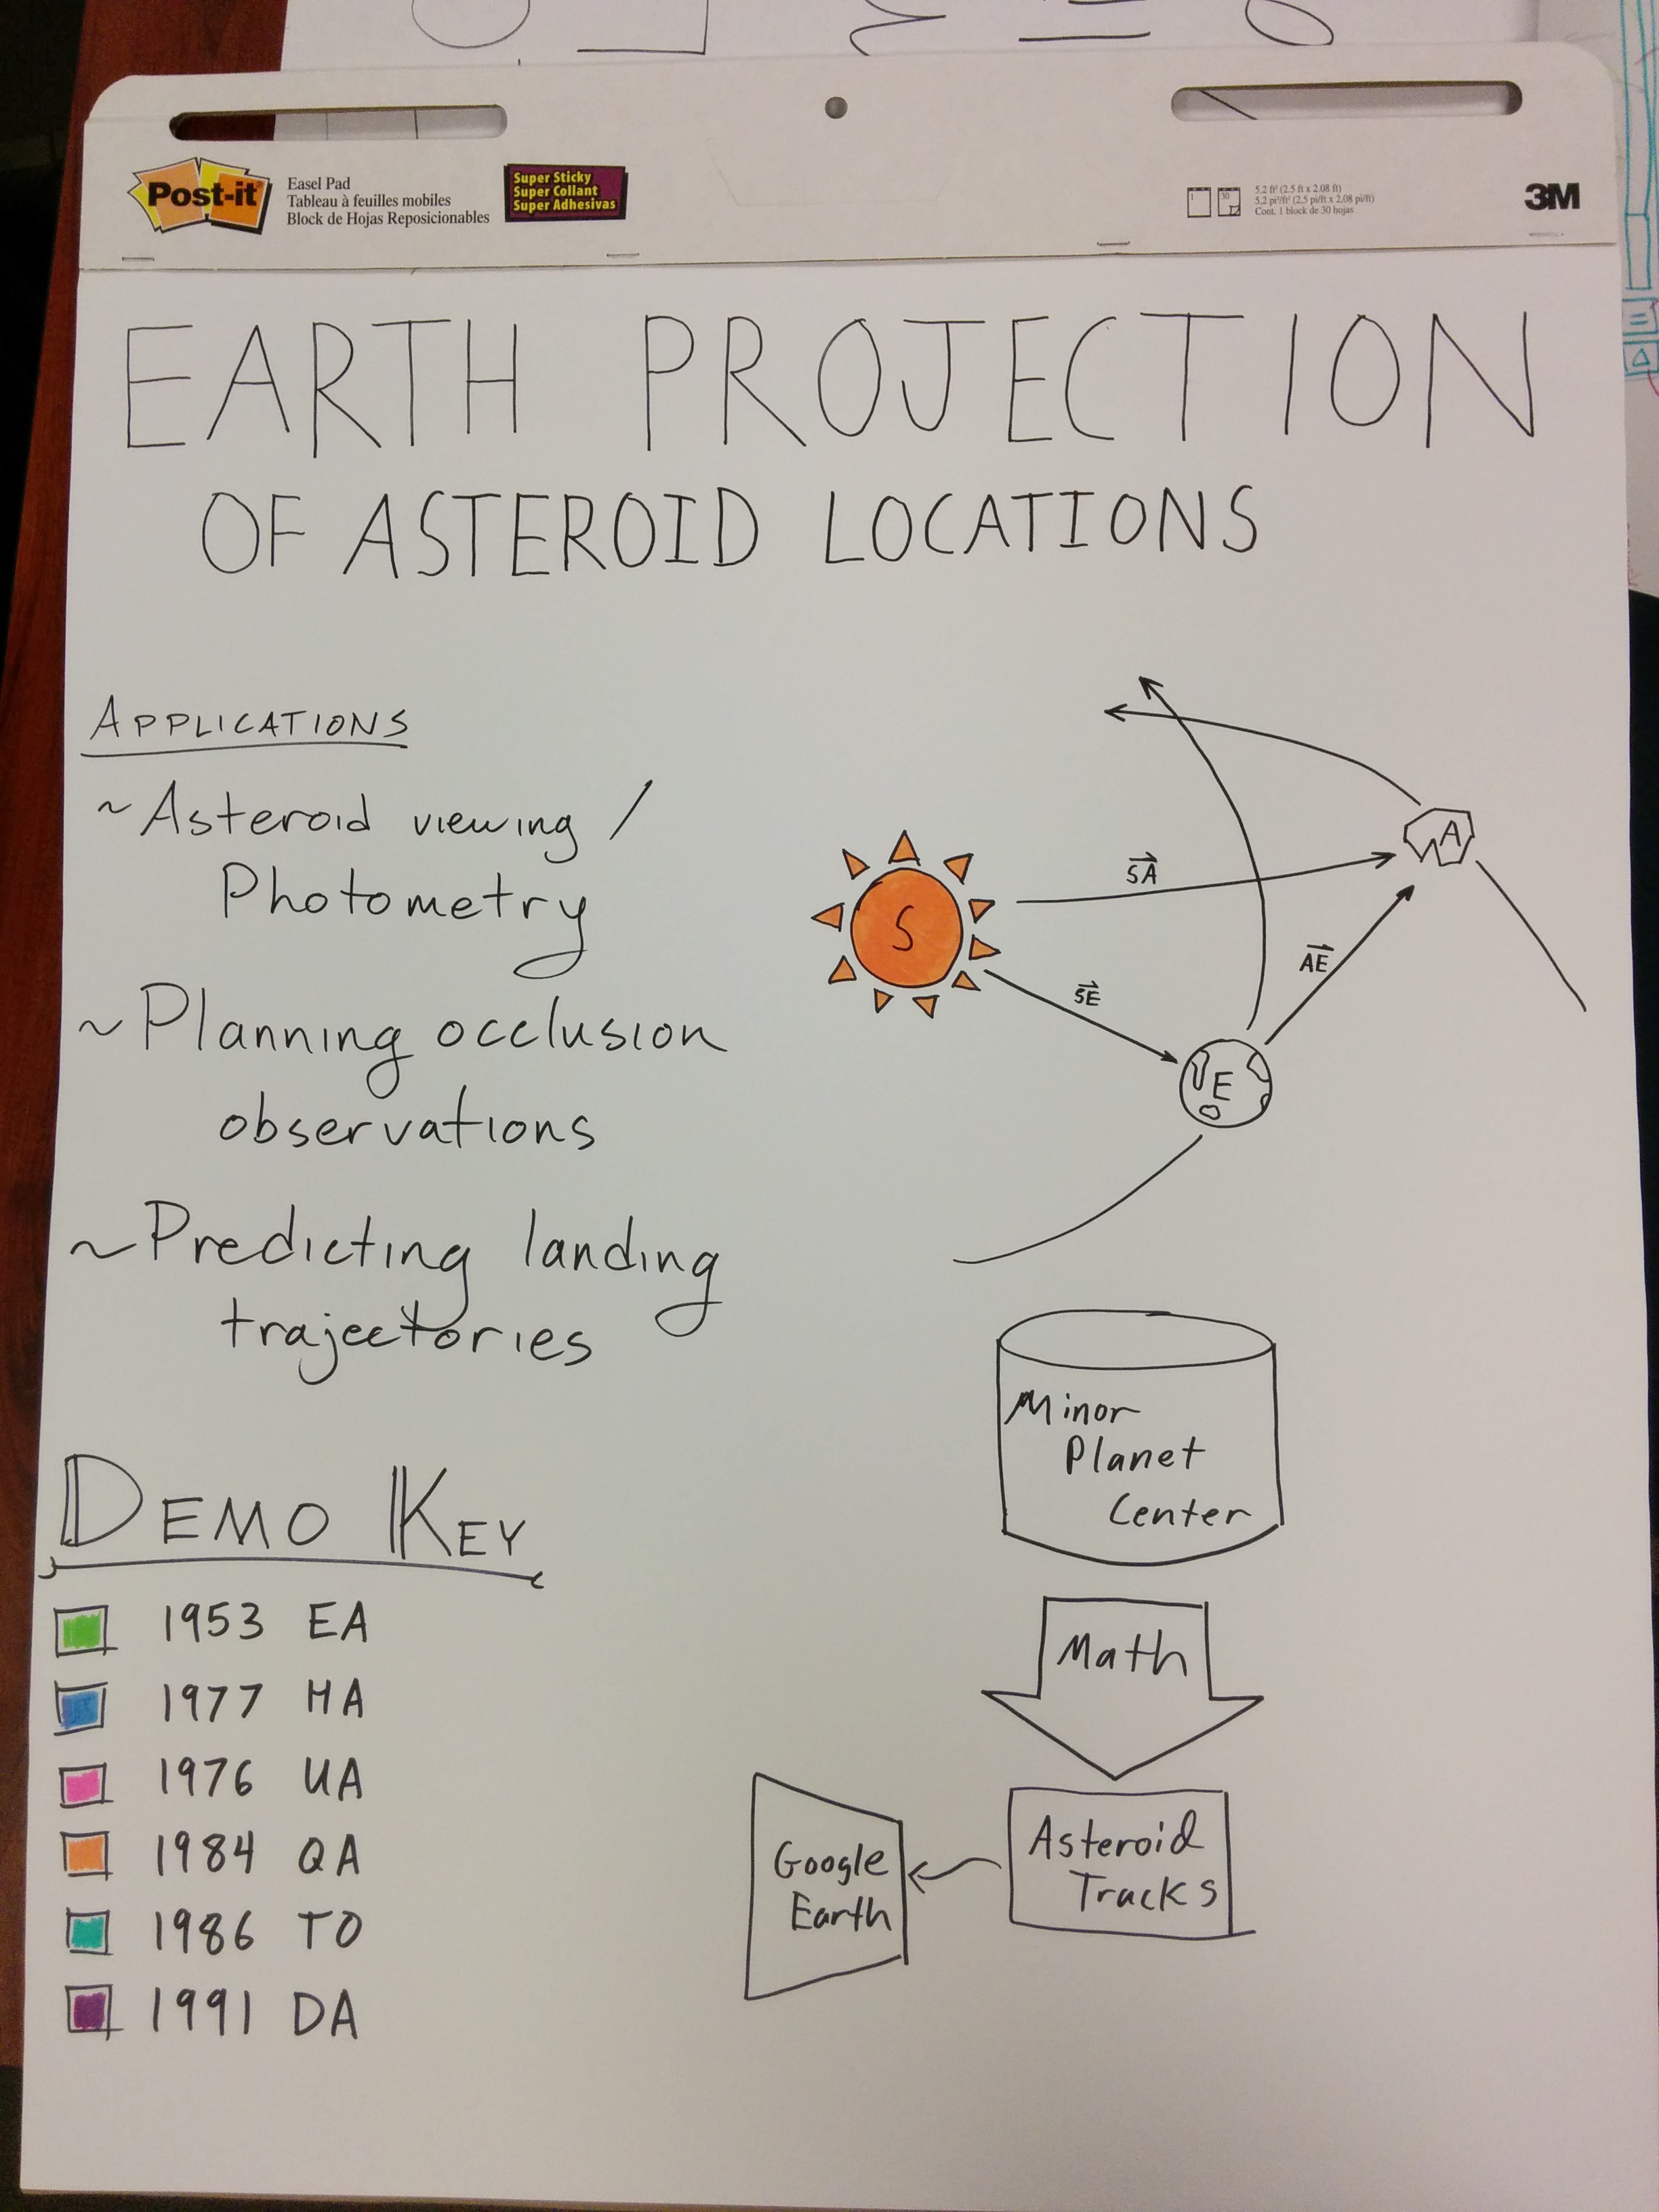 Post-it
Easel Pad
Tableau à feuilles mobiles
Block de Hojas Reposicionables
Super Sticky
Super Collant
Super Adhesivas
5.2 ft² (2.5 ft x 2.08 ft)
5.2 pi²/ft² (2.5 pi/ft x 2,08 pi/ft)
Cont. 1 block de 30 hojas
3M
EARTH PROJECTION
OF ASTEROID LOCATIONS
APPLICATIONS
~ Asteroid viewing /
Photometry
~ Planning occlusion
observations
~ Predicting landing
trajectories
S
SA
A
SE
AE
E
Minor
Planet
Center
Math
Asteroid
Tracks
Google
Earth
DEMO KEY
1953 EA
1977 HA
1976 UA
1984 QA
1986 TO
1991 DA